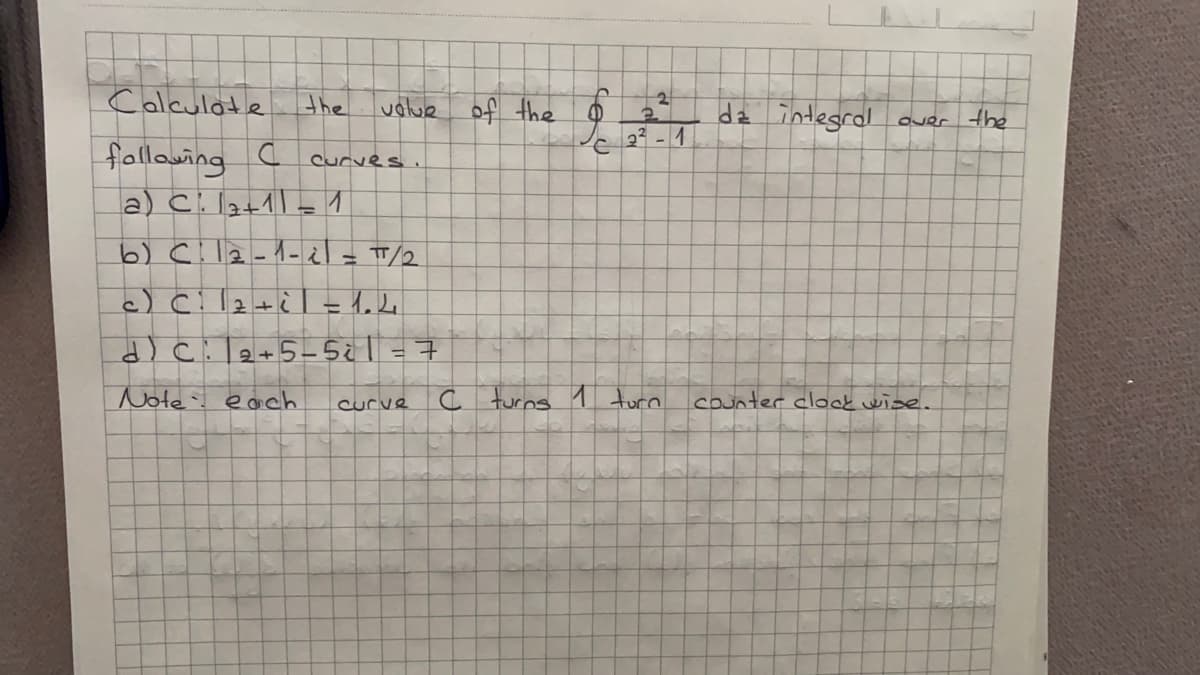 Calculate the value of the ∮_C z²/(z² - 1) dz integral over the
following C curves.
a) C: |z+1| = 1
b) C: |z-1-i| = π/2
c) C: |z+i| = 1.4
d) C: |z+5-5i| = 7
Note: each curve C turns 1 turn counter clock wise.